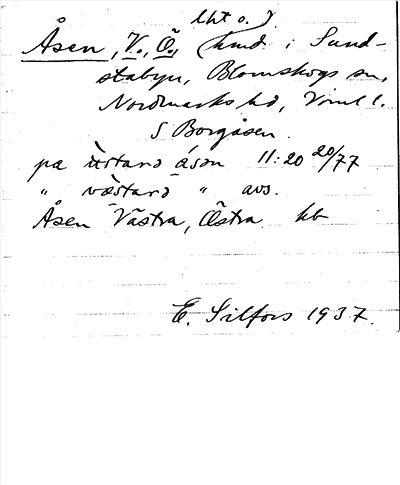 lht o. J
Åsen, V., Ö., (hmd i Sund-
stabyn, Blomskogs sn,
Nordmarks hd, Vrml l.
S Borgåsen.
pa ùstarə åsən 11:20 20/77
" væ̀starə " avs.
Åsen Västra, Östra kb
E. Silfors 1937.